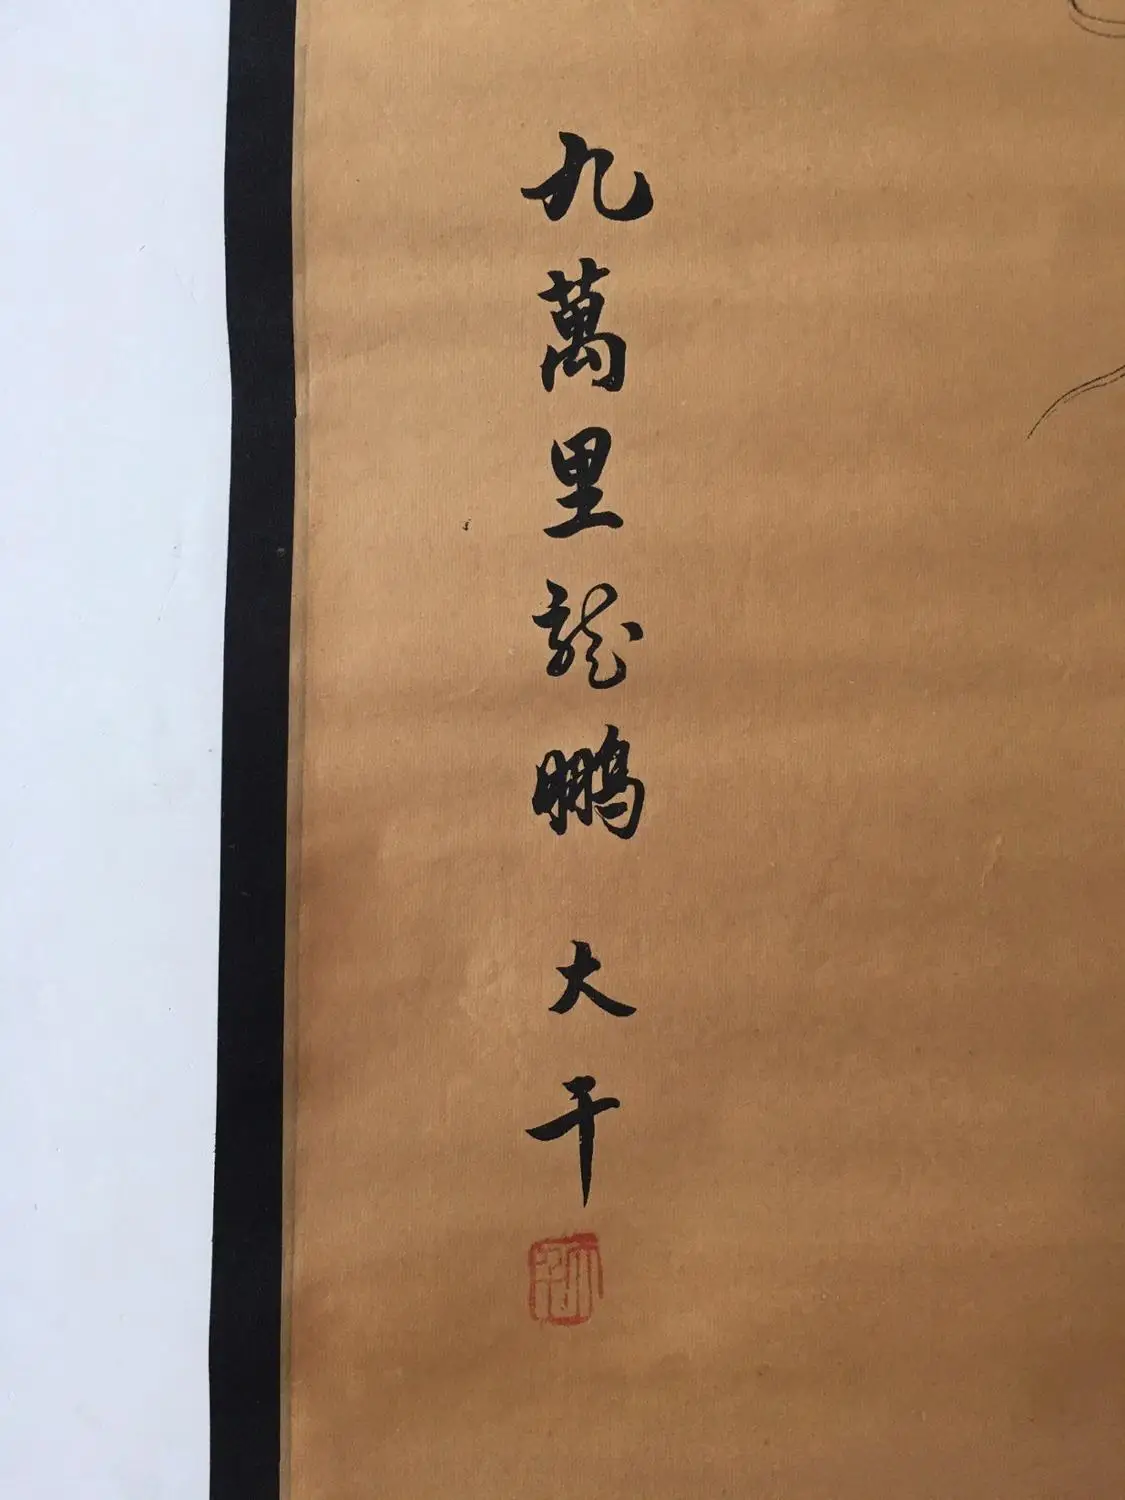 九萬里龍鵬 大千